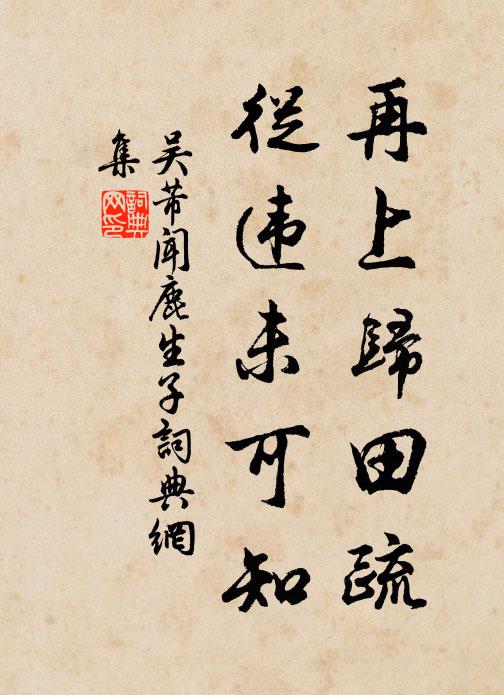 再上歸田疏
從违未可知
吴芾聞鹿生子詞典網
集
詞典网印